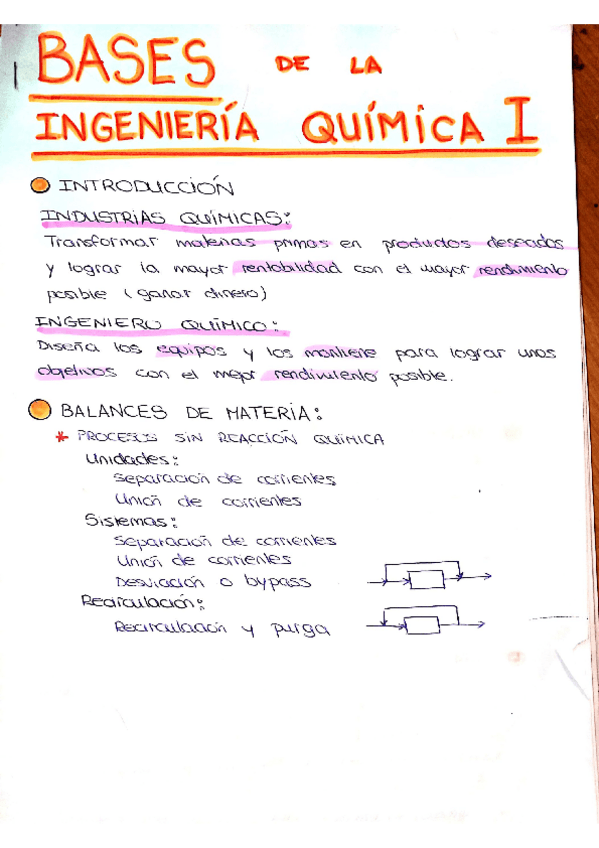 BASES DE LA
INGENIERÍA QUÍMICA I
INTRODUCCIÓN
INDUSTRIAS QUÍMICAS:
Transformar materias primas en productos deseados
y lograr la mayor rentabilidad con el mayor rendimiento
posible (ganar dinero)
INGENIERO QUÍMICO:
Diseña los equipos y los mantiene para lograr unos
objetivos con el mejor rendimiento posible.
BALANCES DE MATERIA:
* PROCESOS SIN REACCIÓN QUÍMICA
Unidades:
Separación de corrientes
Unión de corrientes
Sistemas:
Separación de corrientes
Unión de corrientes
Desviación o bypass
Recirculación:
Recirculación y purga